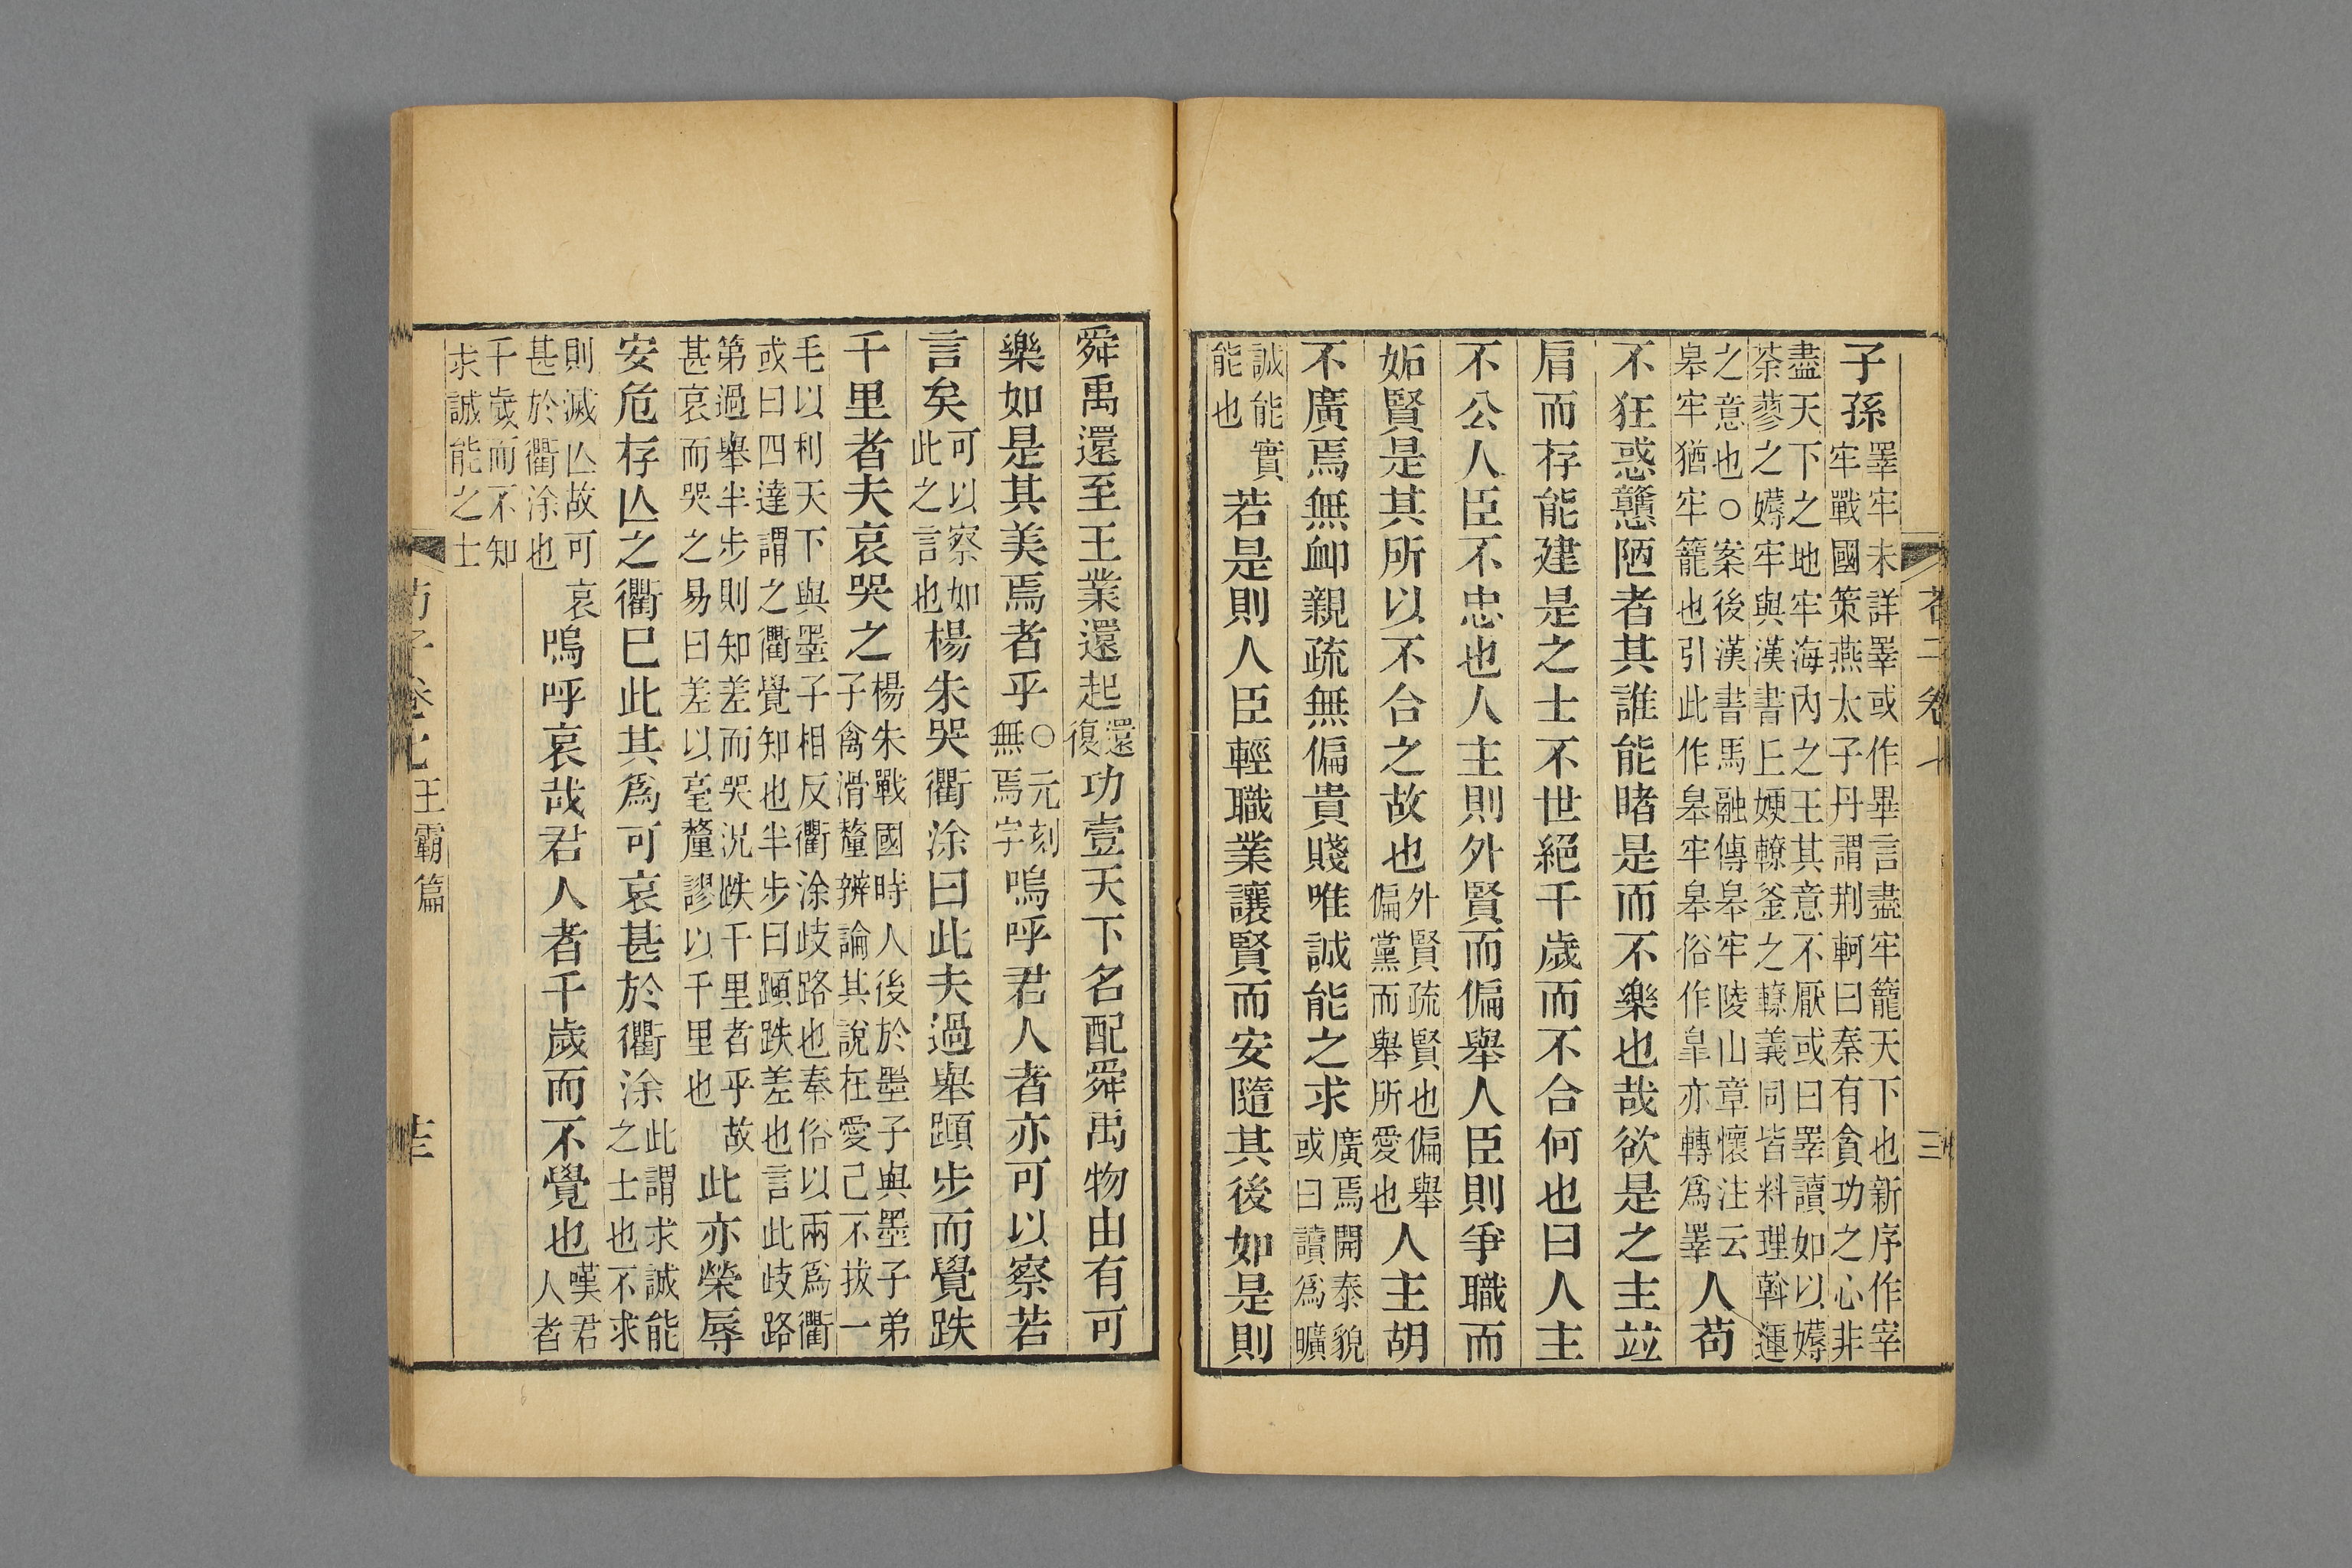 子孫睪牢未詳睪或作畢言盡牢籠天下也新序作宰
牢戰國策燕太子丹謂荆軻曰秦有貪功之心非
盡天下之地牢海內之王其意不厭或曰睪讀如以薅
荼蓼之薅牢與漢書丘㛐轑釜之轑義同皆料理斡運
之意也○案後漢書馬融傳皋牢陵山章懷注云
皋牢猶牢籠也引此作皋牢皋俗作皐亦轉爲睪
人苟
不狂惑戇陋者其誰能睹是而不樂也哉欲是之主竝
肩而存能建是之士不世絕千歲而不合何也曰人主
不公人臣不忠也人主則外賢而偏舉人臣則爭職而
妬賢是其所以不合之故也外賢疏賢也偏舉
偏黨而舉所愛也
人主胡
不廣焉無卹親疏無偏貴賤唯誠能之求廣焉開泰貌
或曰讀爲曠
誠能實
能也
若是則人臣輕職業讓賢而安隨其後如是則
舜禹還至王業還起還
復
功壹天下名配舜禹物由有可
樂如是其美焉者乎○元刻
無焉字
嗚呼君人者亦可以察若
言矣可以察如
此之言也
楊朱哭衢涂曰此夫過舉蹞步而覺跌
千里者夫哀哭之楊朱戰國時人後於墨子與墨子弟
子禽滑釐辨論其說在愛己不拔一
毛以利天下與墨子相反衢涂歧路也秦俗以兩爲衢
或曰四達謂之衢覺知也半步曰蹞跌差也言此歧路
第過舉半步則知差而哭況跌千里者乎故
甚哀而哭之易曰差以毫釐謬以千里也
此亦榮辱
安危存亾之衢已此其爲可哀甚於衢涂此謂求誠能
之士也不求
則滅亾故可哀
甚於衢涂也
嗚呼哀哉君人者千歲而不覺也嘆君
人者
千歲而不知
求誠能之士
王霸篇